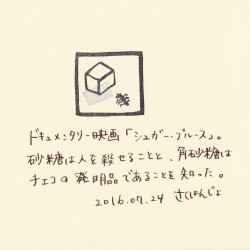 ドキュメンタリー映画「シュガー・ブルース」。
砂糖は人を殺せることと、角砂糖は
チェコの発明品であることを知った。
2016.07.24 さくはんじょ